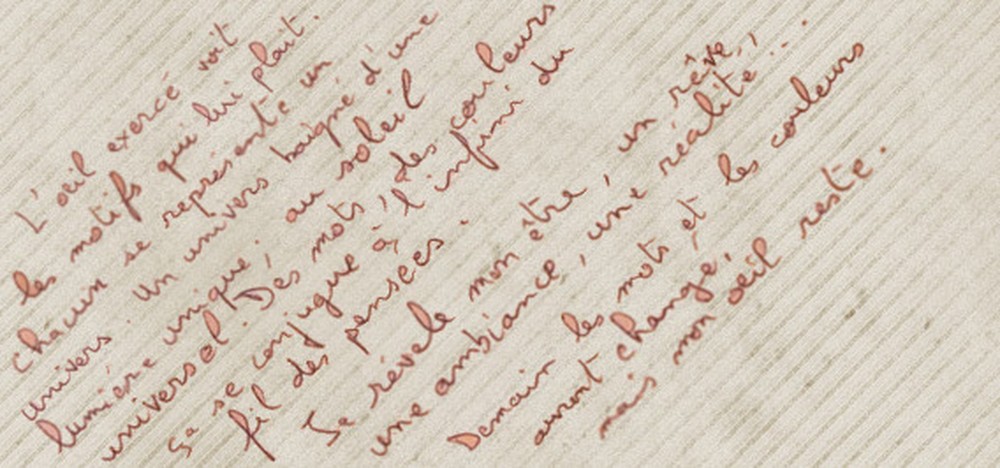 L'oeil exercé voit
les motifs qui lui plait.
Chacun se représente un
univers. Un univers baigné d'une
lumière unique, au soleil
universel. Des mots, des couleurs
ça se conjugue à l'infini du
fil des pensées.
Se révèle mon être, un rêve,
une ambiance, une réalité...
Demain les mots et les couleurs
auront changé,
mais mon oeil reste.